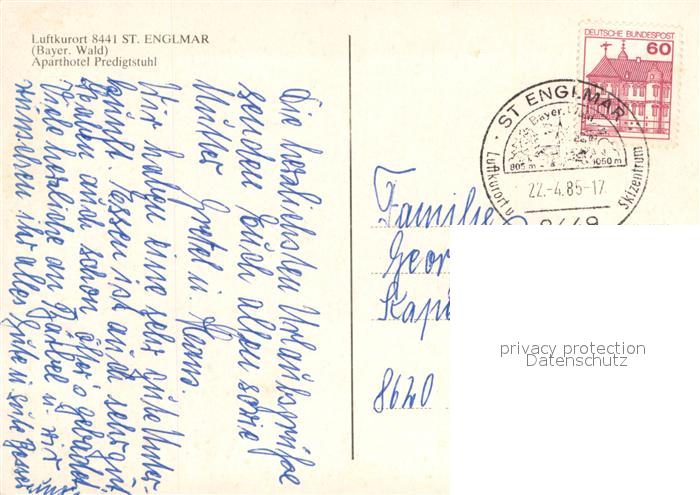 Luftkurort 8441 ST. ENGLMAR
(Bayer. Wald)
Aparthotel Predigtstuhl
DEUTSCHE BUNDESPOST
60
ST ENGLMAR
Bayer. Wald
805 m 1050 m
Luftkurort u. Skizentrum
22.-4.85-17
8449
Die herzlichsten Urlaubsgrüße
senden Euch allen sowie
Mutter Gretel u. Hanno.
Wir haben eine sehr gute Unter-
kunft. Essen ist auch sehr gut
auch schon öfter gebadet
Viele herzliche an Bärbel u. wir
wünschen ihr alles Gute u. gute Besser
ung
Familie
Geor
Kapi
8620
privacy protection
Datenschutz